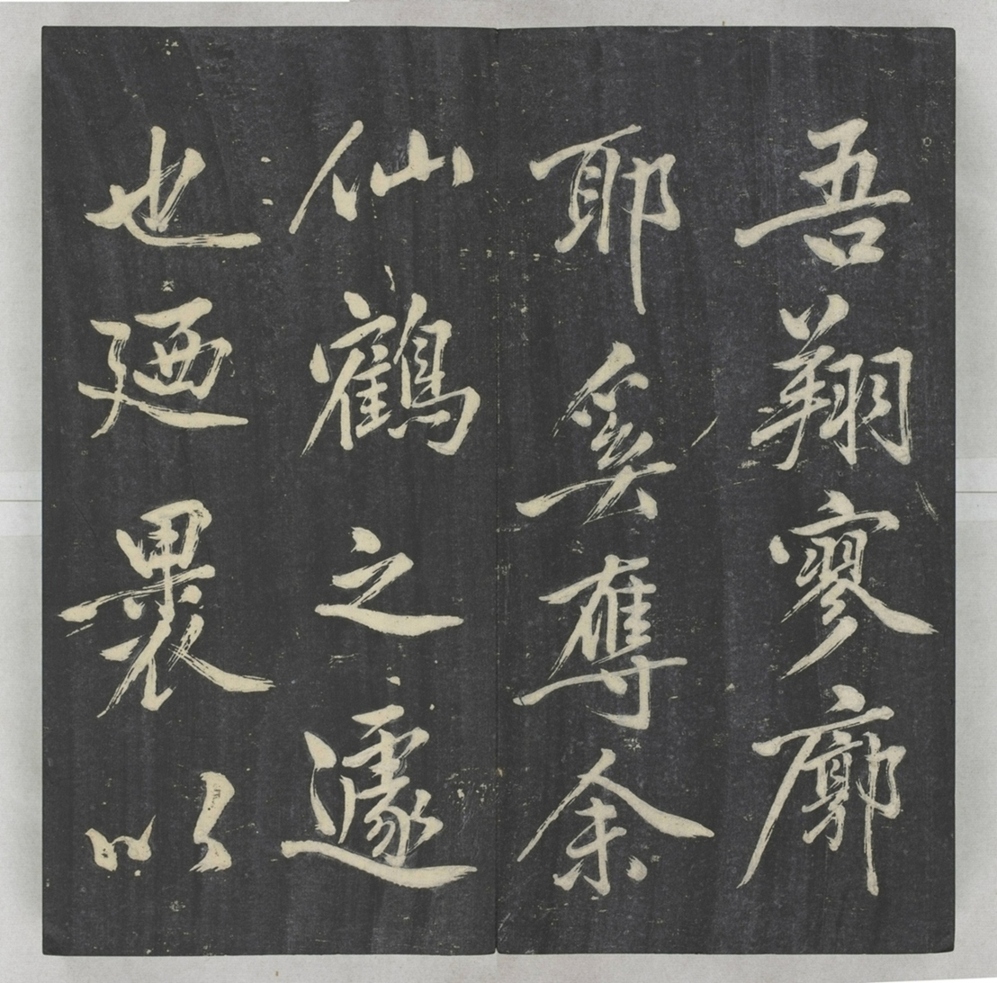 吾翔寥廓
耶奚奪余
仙鶴之遽
也廼裹以